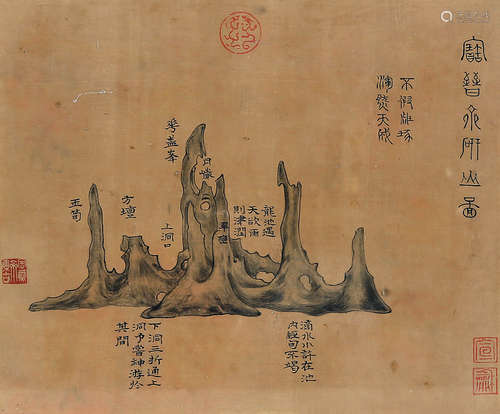 寶晉齋研山圖
不假雕琢
渾然天成
華蓋峯
月巖
翠巒
方壇
玉筍
上洞口
龍池遇
天欲雨
則津潤
下洞三折通上
洞予嘗神游於
其間
滴水小許在池
內經旬不竭